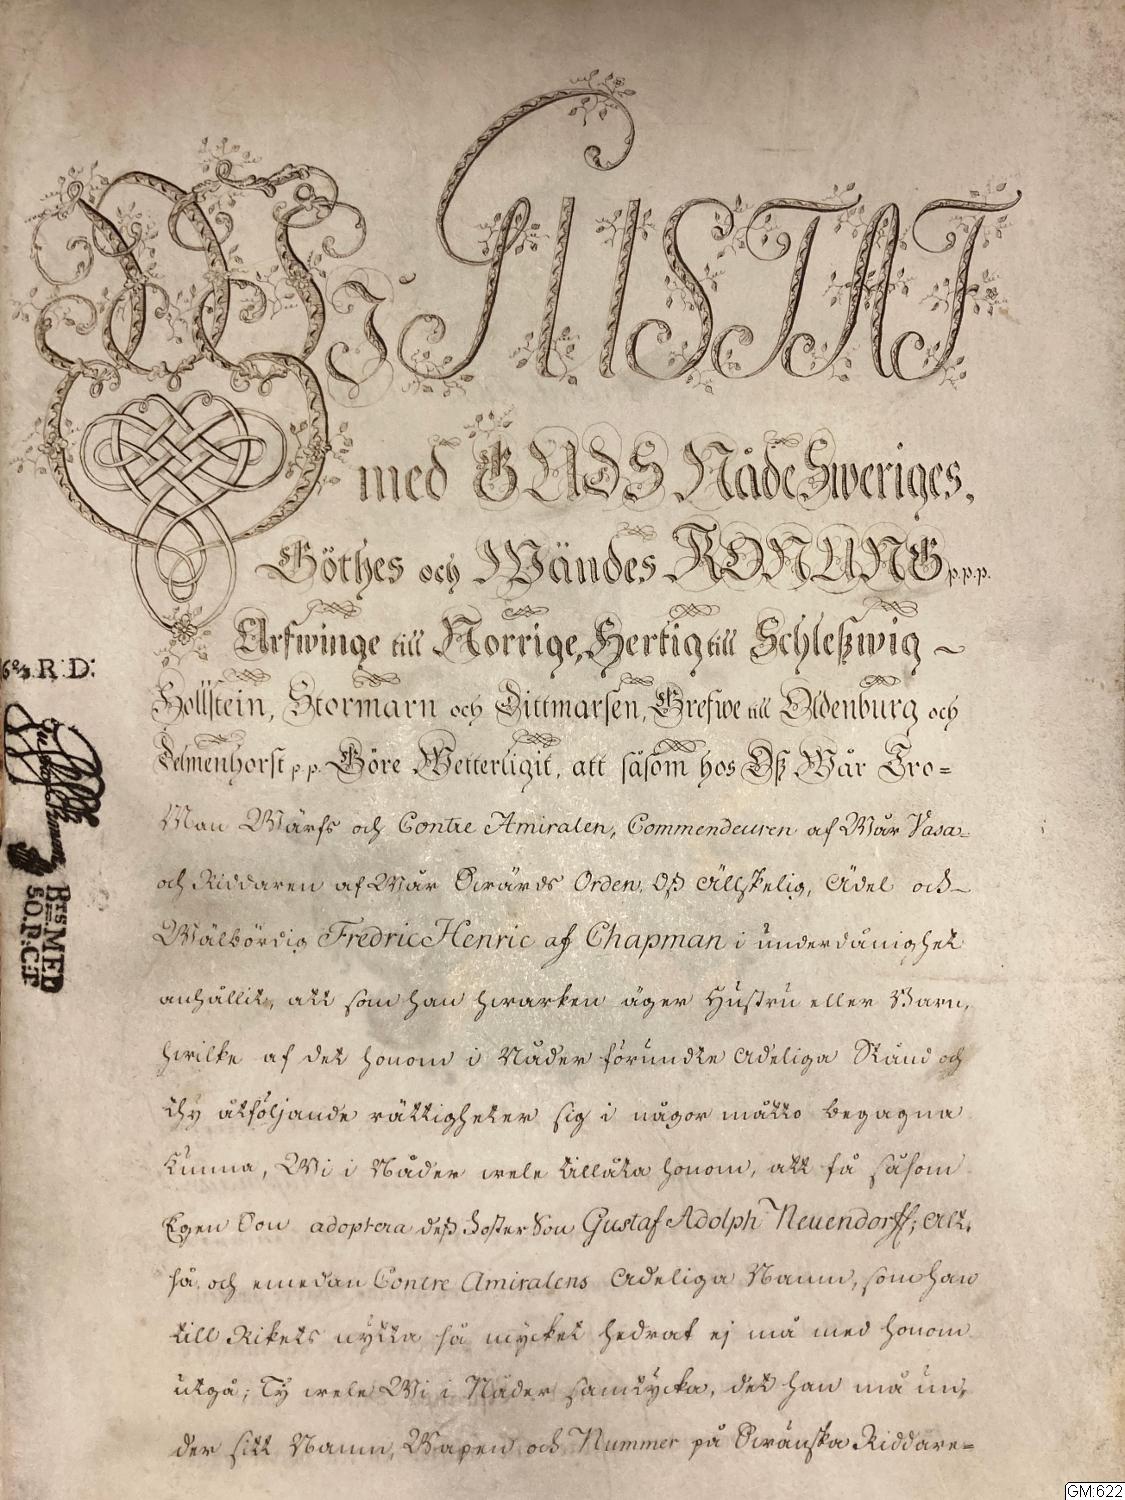 Wi GUSTAF
med GUDS Nåde Sweriges,
Göthes och Wändes KONUNG p.p.p.
Arfwinge till Norrige, Hertig till Schleßwig ~
Hollstein, Stormarn och Dittmarsen, Grefwe till Oldenburg och
Delmenhorst p.p. Göre Wetterligit, att såsom hos Oß Wår Tro=
Man Wårfs och Contre Amiralen, Commendeuren af Wår Vasa-
och Riddaren af Wår Swärds Orden, Oß Älskelig, Ädel och
Wälbördig Fredric Henric af Chapman i underdånighet
anhållit, att som han hwarken äger Hustru eller Barn,
hwilke af det honom i Nåder förundte Adeliga Stånd och
thy åtföljande rättigheter sig i någor måtto begagna
kunna, Wi i Nåder wele tillåta honom, att få såsom
Egen Son adoptera deß Syster Son Gustaf Adolph Neuendorff; Alt,
så, och emedan Contre Amiralens Adeliga Namn, som han
till Rikets nytta så mycket hedrat ej må med honom
utgå; Ty wele Wi i Nåder samtycka, det han må un,
der sitt Namn, Wapen och Nummer på Swänska Riddare=
R: D:
BTS MED
SO.P:CT
GM:622